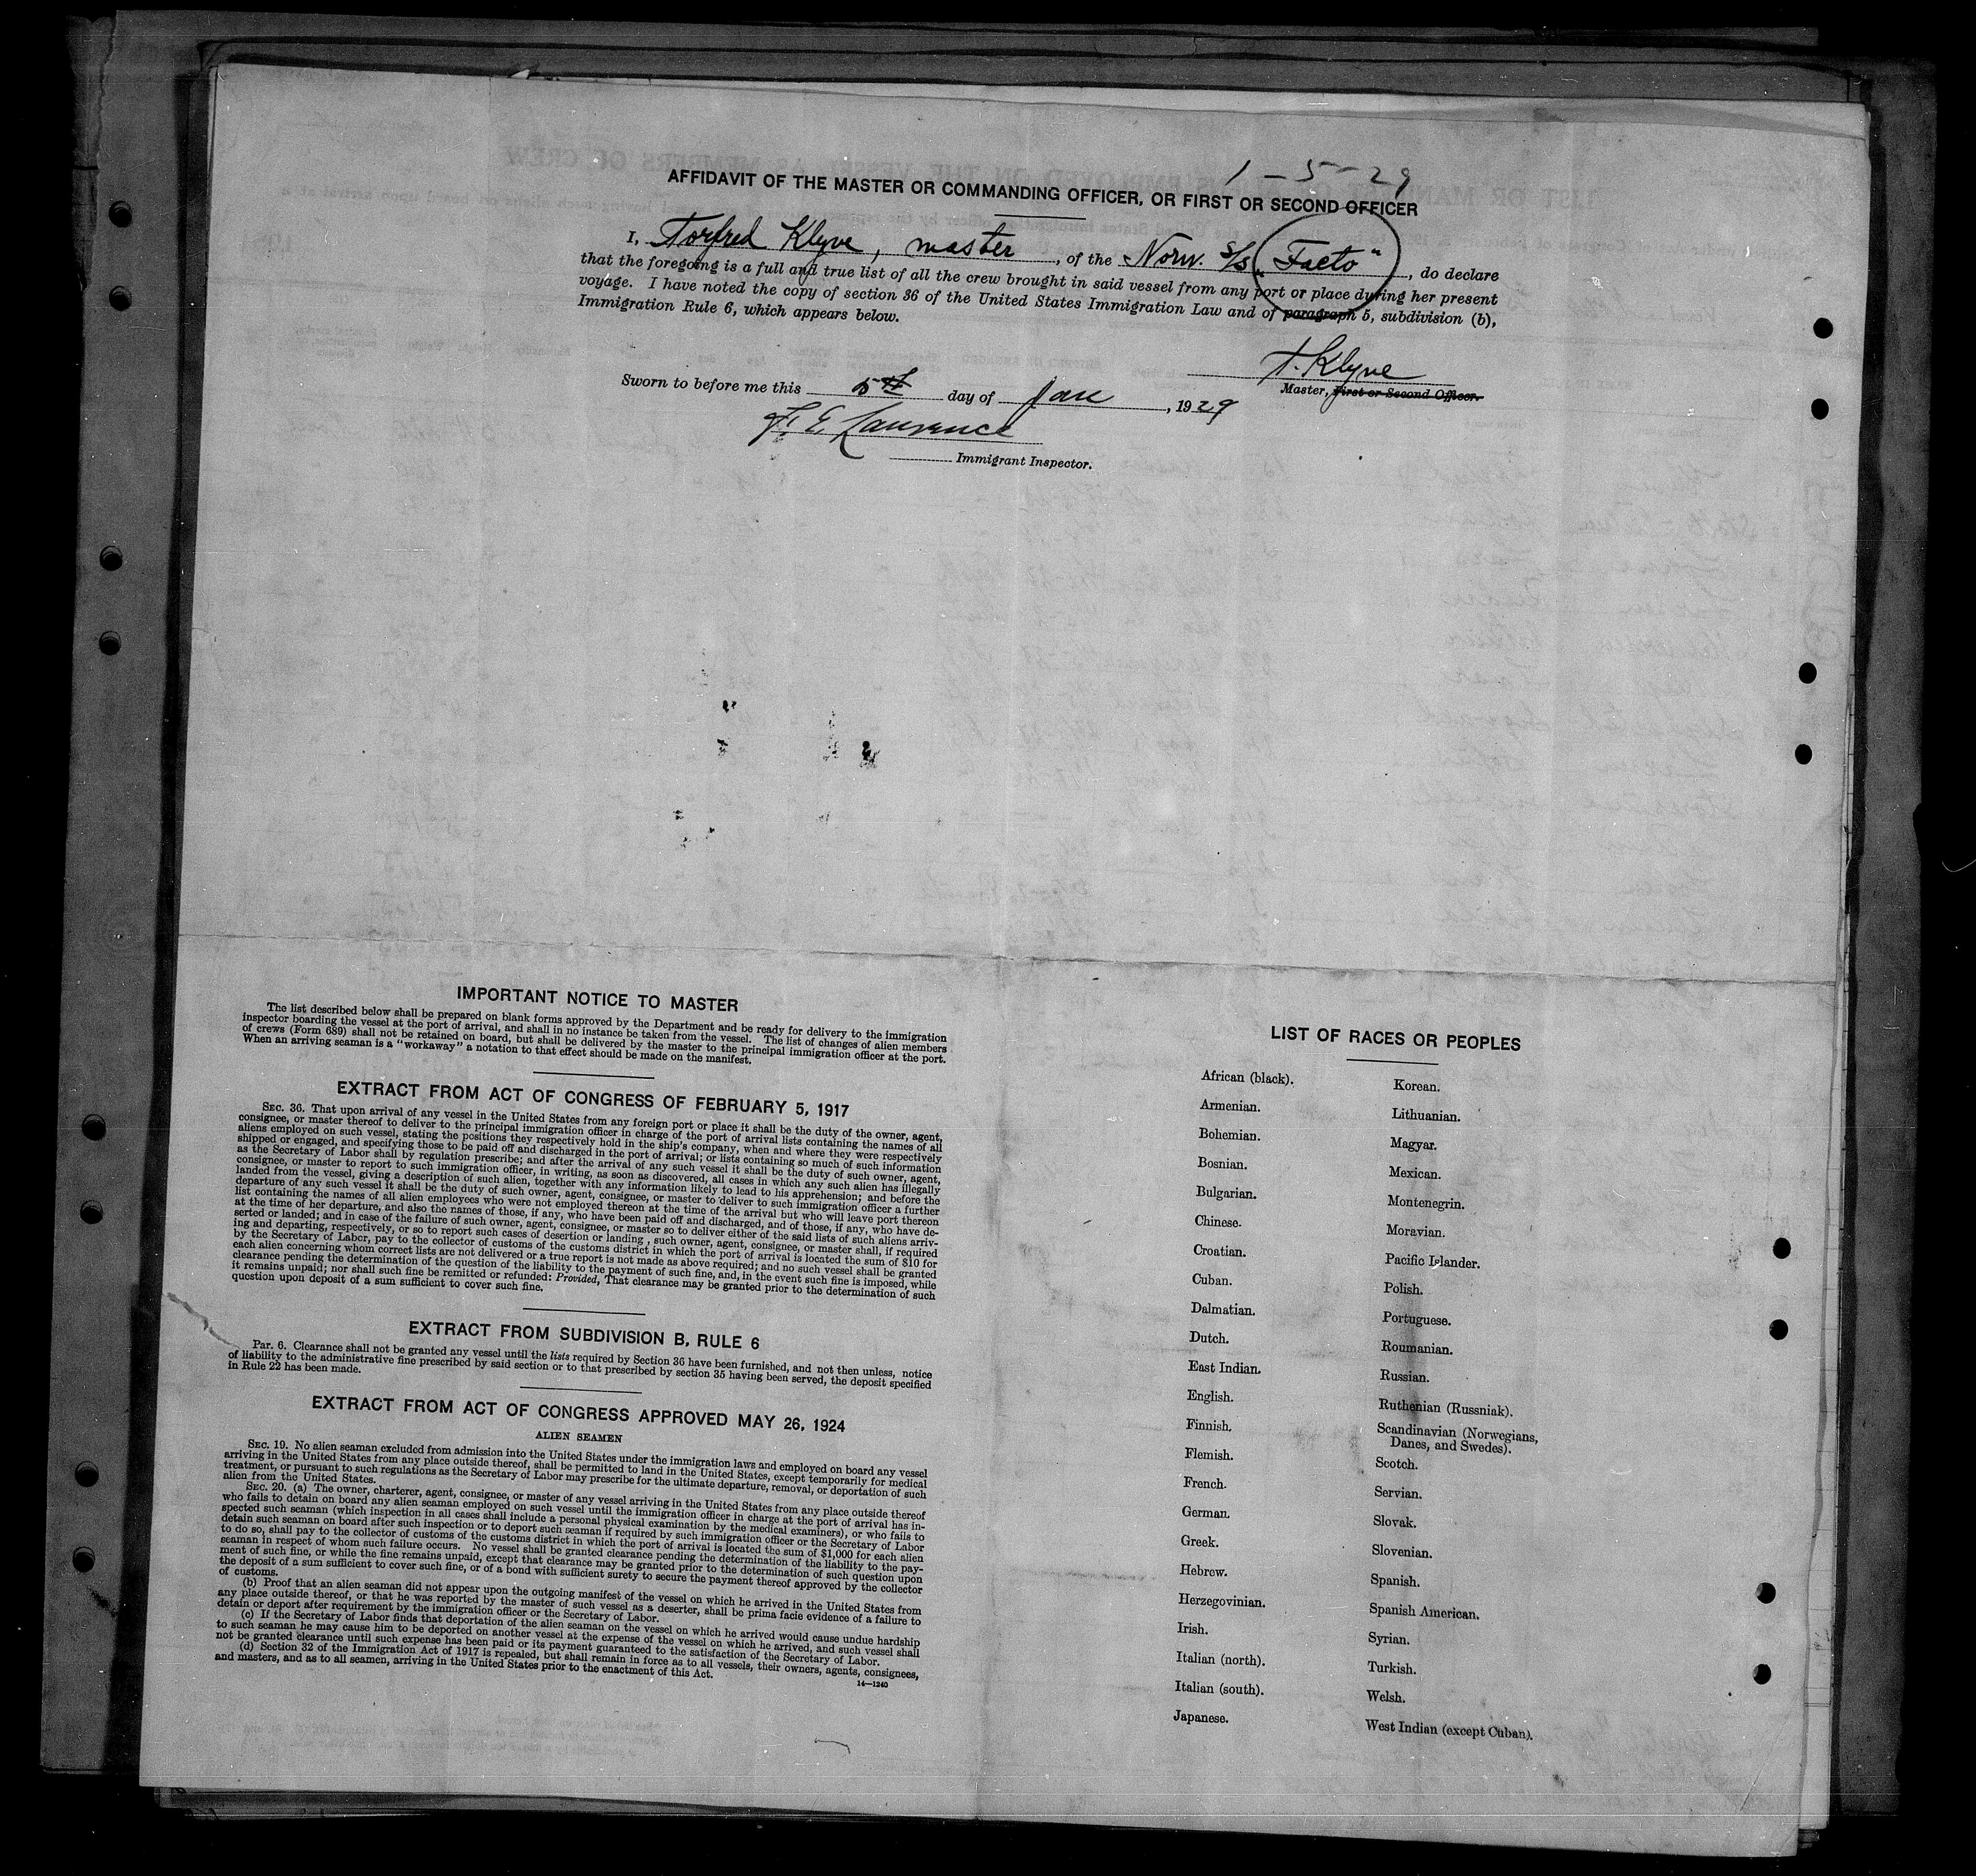 1-5-29
AFFIDAVIT OF THE MASTER OR COMMANDING OFFICER, OR FIRST OR SECOND OFFICER
I, Torfred Klyve, master, of the Norw. S/S "Facto", do declare
that the foregoing is a full and true list of all the crew brought in said vessel from any port or place during her present
voyage. I have noted the copy of section 36 of the United States Immigration Law and of paragraph 5, subdivision (b),
Immigration Rule 6, which appears below.
T. Klyve
Master, First or Second Officer.
Sworn to before me this 5th day of Jan, 1929
F. E. Lawrence
Immigrant Inspector.
IMPORTANT NOTICE TO MASTER
The list described below shall be prepared on blank forms approved by the Department and be ready for delivery to the immigration
inspector boarding the vessel at the port of arrival, and shall in no instance be taken from the vessel. The list of changes of alien members
of crews (Form 689) shall not be retained on board, but shall be delivered by the master to the principal immigration officer at the port.
When an arriving seaman is a "workaway" a notation to that effect should be made on the manifest.
EXTRACT FROM ACT OF CONGRESS OF FEBRUARY 5, 1917
SEC. 36. That upon arrival of any vessel in the United States from any foreign port or place it shall be the duty of the owner, agent,
consignee, or master thereof to deliver to the principal immigration officer in charge of the port of arrival lists containing the names of all
aliens employed on such vessel, stating the positions they respectively hold in the ship's company, when and where they were respectively
shipped or engaged, and specifying those to be paid off and discharged in the port of arrival; or lists containing so much of such information
as the Secretary of Labor shall by regulation prescribe; and after the arrival of any such vessel it shall be the duty of such owner, agent,
consignee, or master to report to such immigration officer, in writing, as soon as discovered, all cases in which any such alien has illegally
landed from the vessel, giving a description of such alien, together with any information likely to lead to his apprehension; and before the
departure of any such vessel it shall be the duty of such owner, agent, consignee, or master to deliver to such immigration officer a further
list containing the names of all alien employees who were not employed thereon at the time of the arrival but who will leave port thereon
at the time of her departure, and also the names of those, if any, who have been paid off and discharged, and of those, if any, who have de-
serted or landed; and in case of the failure of such owner, agent, consignee, or master so to deliver either of the said lists of such aliens arriv-
ing and departing, respectively, or so to report such cases of desertion or landing, such owner, agent, consignee, or master shall, if required
by the Secretary of Labor, pay to the collector of customs of the customs district in which the port of arrival is located the sum of $10 for
each alien concerning whom correct lists are not delivered or a true report is not made as above required; and no such vessel shall be granted
clearance pending the determination of the question of the liability to the payment of such fine, and, in the event such fine is imposed, while
it remains unpaid; nor shall such fine be remitted or refunded: Provided, That clearance may be granted prior to the determination of such
question upon deposit of a sum sufficient to cover such fine.
EXTRACT FROM SUBDIVISION B, RULE 6
Par. 6. Clearance shall not be granted any vessel until the lists required by Section 36 have been furnished, and not then unless, notice
of liability to the administrative fine prescribed by said section or to that prescribed by section 35 having been served, the deposit specified
in Rule 22 has been made.
EXTRACT FROM ACT OF CONGRESS APPROVED MAY 26, 1924
ALIEN SEAMEN
SEC. 19. No alien seaman excluded from admission into the United States under the immigration laws and employed on board any vessel
arriving in the United States from any place outside thereof, shall be permitted to land in the United States, except temporarily for medical
treatment, or pursuant to such regulations as the Secretary of Labor may prescribe for the ultimate departure, removal, or deportation of such
alien from the United States.
SEC. 20. (a) The owner, charterer, agent, consignee, or master of any vessel arriving in the United States from any place outside thereof
who fails to detain on board any alien seaman employed on such vessel until the immigration officer in charge at the port of arrival has in-
spected such seaman (which inspection in all cases shall include a personal physical examination by the medical examiners), or who fails to
detain such seaman on board after such inspection or to deport such seaman if required by such immigration officer or the Secretary of Labor
to do so, shall pay to the collector of customs of the customs district in which the port of arrival is located the sum of $1,000 for each alien
seaman in respect of whom such failure occurs. No vessel shall be granted clearance pending the determination of the liability to the pay-
ment of such fine, or while the fine remains unpaid, except that clearance may be granted prior to the determination of such question upon
the deposit of a sum sufficient to cover such fine, or of a bond with sufficient surety to secure the payment thereof approved by the collector
of customs.
(b) Proof that an alien seaman did not appear upon the outgoing manifest of the vessel on which he arrived in the United States from
any place outside thereof, or that he was reported by the master of such vessel as a deserter, shall be prima facie evidence of a failure to
detain or deport after requirement by the immigration officer or the Secretary of Labor.
(c) If the Secretary of Labor finds that deportation of the alien seaman on the vessel on which he arrived would cause undue hardship
to such seaman he may cause him to be deported on another vessel at the expense of the vessel on which he arrived, and such vessel shall
not be granted clearance until such expense has been paid or its payment guaranteed to the satisfaction of the Secretary of Labor.
(d) Section 32 of the Immigration Act of 1917 is repealed, but shall remain in force as to all vessels, their owners, agents, consignees,
and masters, and as to all seamen, arriving in the United States prior to the enactment of this Act.
14—1240
LIST OF RACES OR PEOPLES
African (black).
Armenian.
Bohemian.
Bosnian.
Bulgarian.
Chinese.
Croatian.
Cuban.
Dalmatian.
Dutch.
East Indian.
English.
Finnish.
Flemish.
French.
German.
Greek.
Hebrew.
Herzegovinian.
Irish.
Italian (north).
Italian (south).
Japanese.
Korean.
Lithuanian.
Magyar.
Mexican.
Montenegrin.
Moravian.
Pacific Islander.
Polish.
Portuguese.
Roumanian.
Russian.
Ruthenian (Russniak).
Scandinavian (Norwegians,
Danes, and Swedes).
Scotch.
Servian.
Slovak.
Slovenian.
Spanish.
Spanish American.
Syrian.
Turkish.
Welsh.
West Indian (except Cuban).